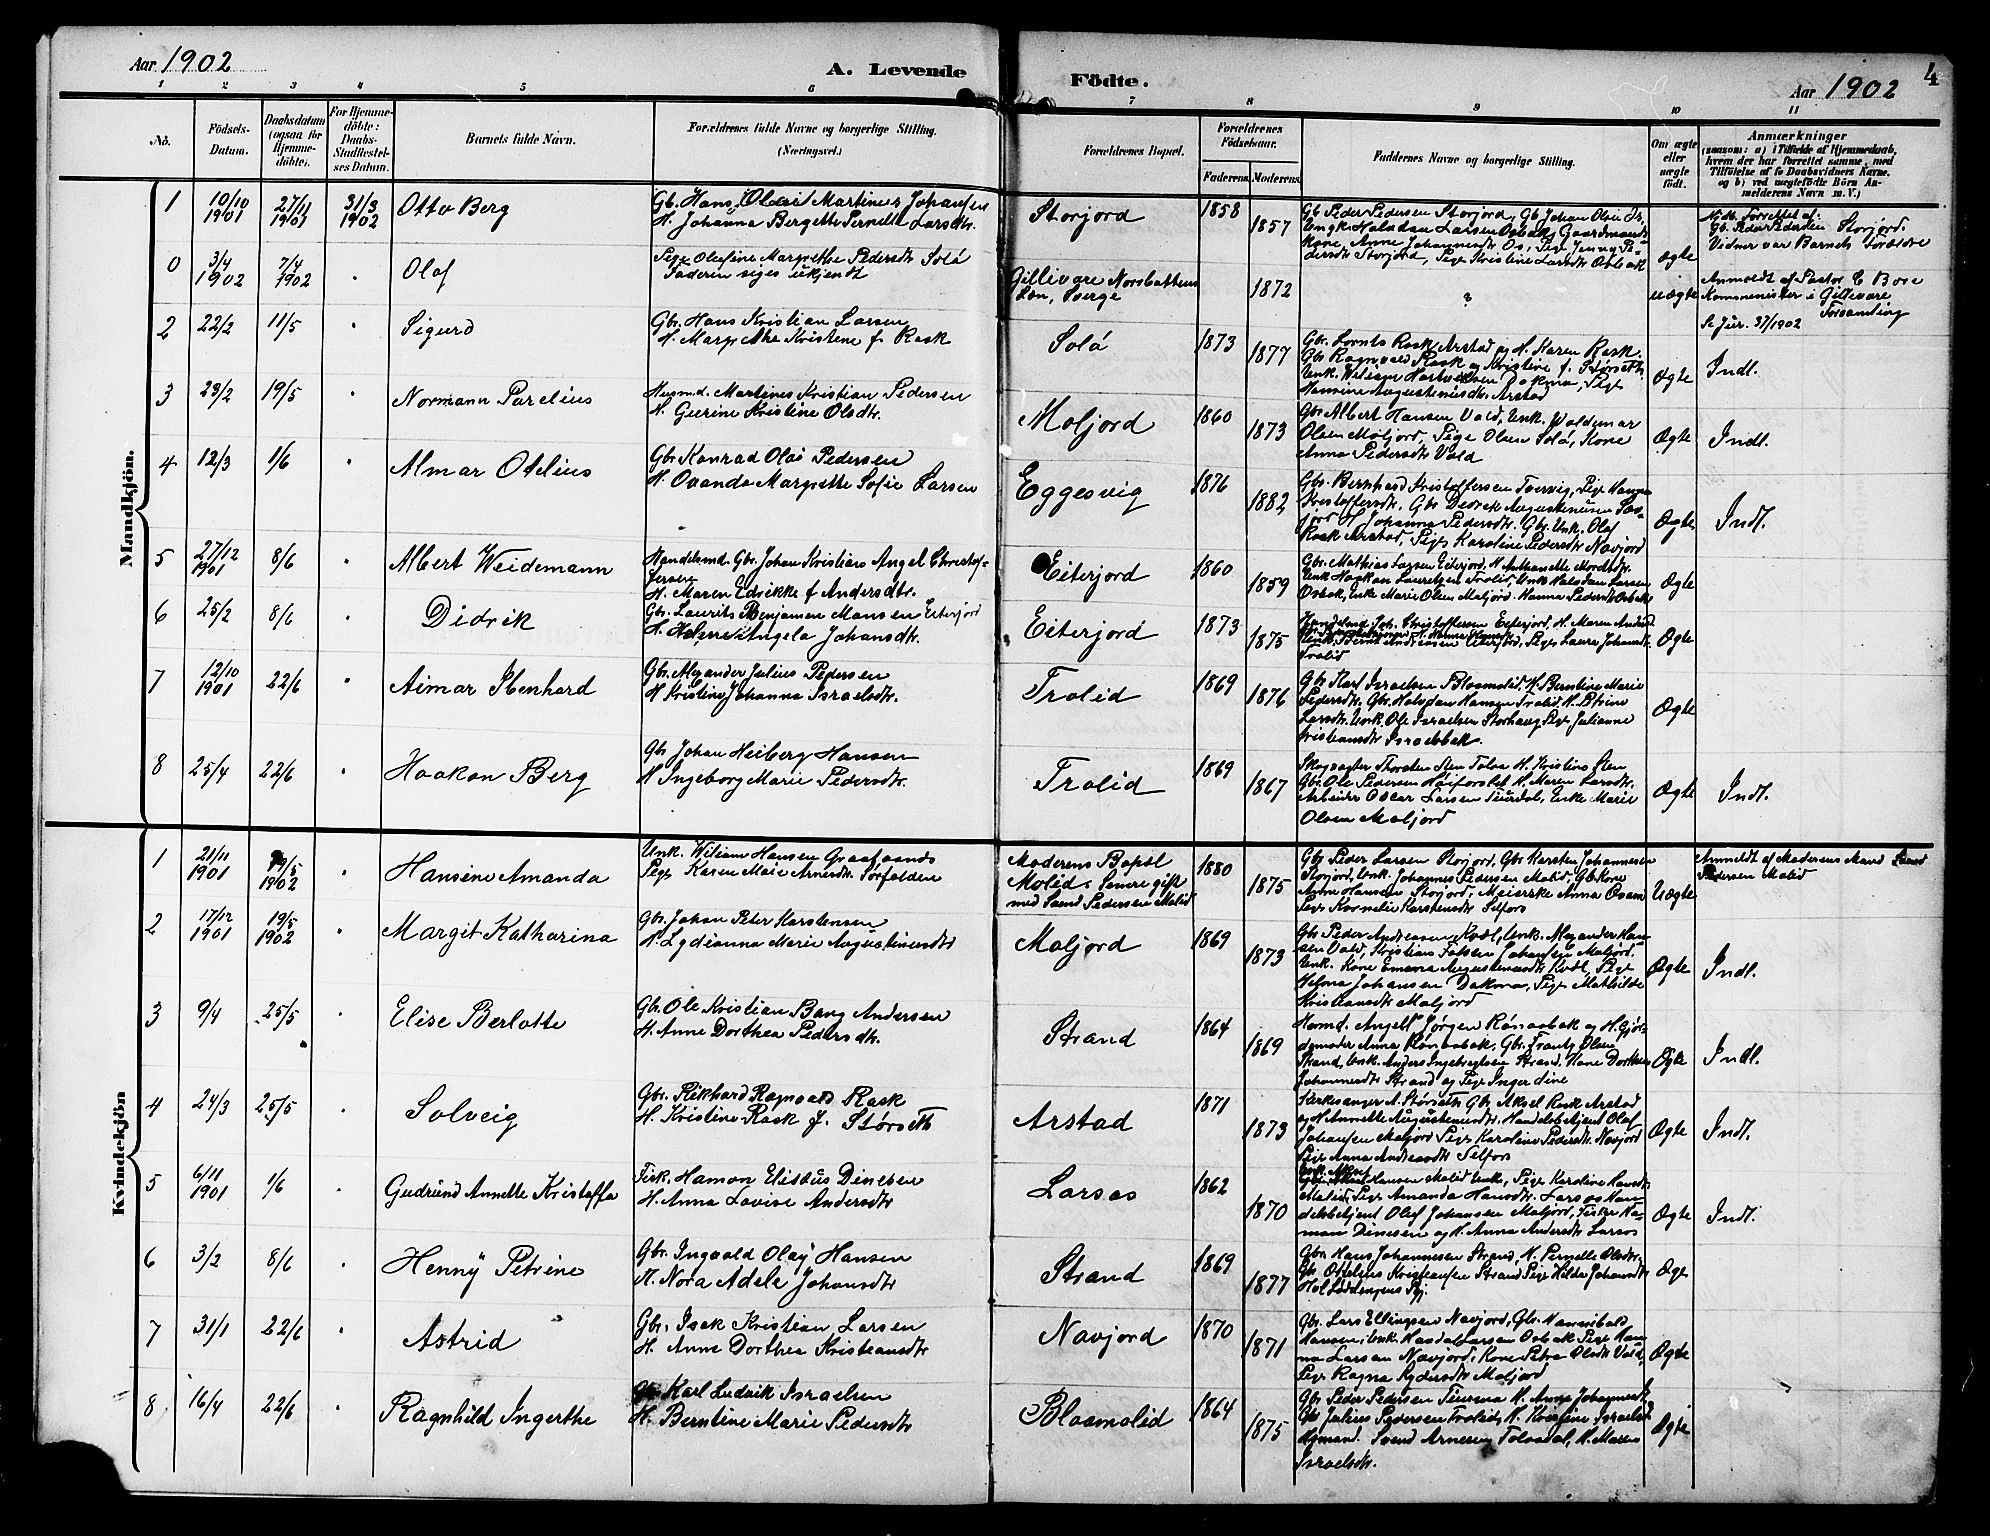 Aar 1902
A. Levende
Födte.
Aar 1902
4
1 2 3 4 5 6 7 8 9 10 11
No.
Födsels-
Datum.
Daabsdatum
(ogsaa for
Hjemme-
döbte).
For Hjemme-
döbte:
Daabs-
Stadfæstel-
ses Datum.
Barnets fulde Navn.
Forældrenes fulde Navne og borgerlige Stilling.
(Næringsvei.)
Forældrenes Bopæl.
Forældrenes
Födselsaar.
Faderens. Moderens.
Faddernes Navne og borgerlige Stilling.
Om ægte
eller
uægte
født.
Anmærkninger
(saasom: a) i Tilfælde af Hjemmedaab,
hvem der har forrettet samme, med
Tilföielse af to Daabsvidners Navne.
og b) ved uægtefödte Börn An-
melderens Navn m. V.)
Mandkjön.
1 10/10 1901 27/11 1901 31/3 1902 Otto Berg
Gb. Hans Olai Martines Johansen
H. Johanna Bergette Pernelle Larsdtr.
Storjord 1858 1857
Gb Peder Pedersen Storjord, Gb Johan Olsen Os,
Ungk Halvdan Larsen Osbak, Gaardmands
kone, Anne Johannesdtr Os, Pige Jenny Pe-
dersdtr Storjord, Pige Kristine Larsdtr Osbak
Ægte
Hjdb. Forrettet af:
Gb. Peder Pedersen Storjord.
Vidner var Barnets Forældre
0 3/4 1902 7/4 1902 Olaf
Pige Olefine Margrethe Pedersdtr Solå
Faderen siges ukjendt
Gillivare Norsbottens
Len, Sverge 1872 ? uægte
Anmeldt af Pastor C Bose
Komminister i Gillivare
Forsamling
Se Jur. 37/1902
2 22/2 11/5 " Sigurd
Gbr. Hans Kristian Larsen
H. Margrethe Kristine f. Rask
Solå 1873 1877
Gbr. Lornts Rask Arstad og H. Karen Rask.
Gbr Ragnvald Rask og Kristine f. Størseth
Unk. William Hartvigsen Dakma, Pige
Hansine Augustinusdtr. Arstad
Ægte Indl.
3 23/2 19/5 " Normann Parelius
Husmd. Martines Kristian Pedersen
H. Gurine Kristine Olsdtr.
Moljord 1860 1873
Gbr Albert Hansen Vald, Unk. Valdemar
Olsen Moljord, Pige Olsen Solå, Kone
Anna Pedersdtr Vald
Ægte Indl.
4 12/3 1/6 " Almar Otelius
Gbr Konrad Olai Pedersen
H. Ovanda Margrethe Sofie Larsen
Eggesvig 1876 1882
Gbr. Bernhard Kristoffersen Tvervig, Pige Hanna
Kristoffersdtr, Gbr Didrik Augustinusen Sav-
jord H Johanna Pedersdtr. Gbr. Unk. Olaf
Rask Arstad, Pige Karoline Pedersdtr Navjord
Ægte Indl.
5 27/12 1901 8/6 " Albert Weidemann
Handelsmd. Gbr. Johan Kristians Angel Christof-
fersen
H. Maren Edrikke f Andersdtr.
Eiterjord 1860 1859
Gbr. Mathias Larsen Eiterjord, H Anthanette Mordtdtr.
Unk Haakon Lauretsen Trolid, Unk Halvdan Larsen
Osbak, Enke Marie Olsen Moljord. Hanna Pedersdtr Osbak
Ægte
6 25/2 8/6 " Didrik
Gbr. Laurits Benjamen Mansen Eiterjord
H. Helene Angela Johansdtr.
Eiterjord 1873 1875
Handelsmd. Joh. Christoffersen Eiterjord, H. Maren Andersd
Pige Laura Johansdtr
Trolid
Ægte
7 12/10 1901 22/6 " Aimar Ibenhard
Gbr. Alexander Julius Pedersen
H Kristine Johanna Israelsdtr.
Trolid 1869 1876
Gbr Karl Israelsen Blaamolid, H. Berntine Marie
Pedersdtr. Gbr. Halvdan Hansen Trolid H. Petrine
Larsdtr. Unk. Ole Israelsen Storhaug Pige Julianne
Kristiansdtr Israelsbak.
Ægte
8 25/4 22/6 " Haakon Berg
Gbr Johan Heiberg Hansen
H Ingeborg Marie Pedersdtr.
Trolid 1869 1867
Skogvogter Thorsten Sten Tolva H. Kristine Sten
Gbr. Ole Pedersen Høiforslet H. Maren Larsdtr.
Arbeider Oscar Larsen Teurdal, Enke Marie
Olsen Moljord
Ægte Indl.
Kvindekjön
1 21/11 1901 19/5 1902 Hansine Amanda
Unk. Wiliam Hansen Graataands
Pige Karen Marie Arnesdtr. Sørfolden
Moderens Bopæl
Molid. Senere gift
med Svend Pedersen Molid 1880 1875
Gbr Peder Larsen Storjord, Gbr. Karsten Johannesen
Storjord, Unk. Johannes Pedersen Molid, Gb.Kone
Anne Hansen Storjord, Meierske Anna Osam
Pige Kornelie Karstensdtr Selfors
Uægte
Anmeldt af Moderens Mand Svend
Pedersen Molid
2 17/12 1901 19/5 1902 " Margit Katharina
Gbr. Johan Peter Karstensen
H. Lydianna Marie Augustinusdtr
Moljord 1869 1873
Gbr. Peder Andreasen Kvæl, Unk. Alexander Han-
sen Vald, Kristians Falsen Johansen Moljord.
Unk. Kone Emma Augustinusdtr Kvæl, Pige
Helma Johansen Dakma, Pige Mathilde
Kristiansdtr Moljord
Ægte Indl.
3 9/4 25/5 " Elise Berlotte
Gbr. Ole Kristian Bang Andersen
H. Anne Dorthea Pedersdtr.
Strand 1864 1869
Husmd. Angell Jørgen Rønaabak og H. Gjør-
demoder Anna Rønaabak, Gbr. Frants Olsen
Strand, Unk. Anders Ingebrigtsen Strand, Kone Dorthea
Johannesdtr Strand og Pige Ingerdine
Ægte Indl.
4 24/3 25/5 " Solveig
Gbr. Rikhard Ragnvald Rask
H. Kristine Rask f. Størseth
Arstad 1871 1873
Kirkesanger A. Størseth Gbr Aksel Rask Arstad
og H Annette Augustinusdtr. Handelsbetjent Olaf
Johansen Moljord Pige Karoline Pedersdtr. Navjord
Pige Anna Andreasdtr Selfors
Ægte Indl.
5 6/11 1901 1/6 " Gudrund Annette Kristoffa
Fisk. Hamon Elisæus Dinesen
H. Anna Lovise Andersdtr
Larsos 1862 1870
Hansen Molid Enke, Pige Karoline Hansdtr
Molid, Pige Amanda Hansdtr. Larsos Han-
delsbetjent Olaf Johansen Moljord, Fisker Ha-
man Dinesen og H. Anna Andersdtr Larsos
Ægte Indl.
6 3/2 8/6 " Henny Petrine
Gbr. Ingvald Olay Hansen
H. Nora Adele Johansdtr
Strand 1869 1877
Gbr. Hans Johannesen Strand, H. Pernelle Olsdtr.
Gbr Ottelius Kristiansen Strand Pige Hilda Johansdtr
Hol Lødingens Pgj.
Ægte
7 31/1 22/6 " Astrid
Gbr. Isak Kristian Larsen
H. Anne Dorthea Kristiansdtr
Navjord 1870 1871
Gbr. Lars Ellingsen Navjord, Gbr. Hanseibald
Hansen, Unk. Havdal Larsen Osbak Pige Han-
na Larsen Navjord, Kone Petra Olsdtr Vald,
Pige Ragna Pedersdtr Moljord
Ægte
8 16/4 22/6 " Ragnhild Ingerthe
Gbr Karl Ludvik Israelsen
H. Berntine Marie Pedersdtr
Blaamolid 1864 1875
Gbr Peder Pedersen Teurma H. Anne Johannesd
Gbr Julius Pedersen Trolid, H. Kristine Israelsd
Ugmand. Svend Arnesen Tolvadal, H. Maren
Israelsdtr.
Ægte